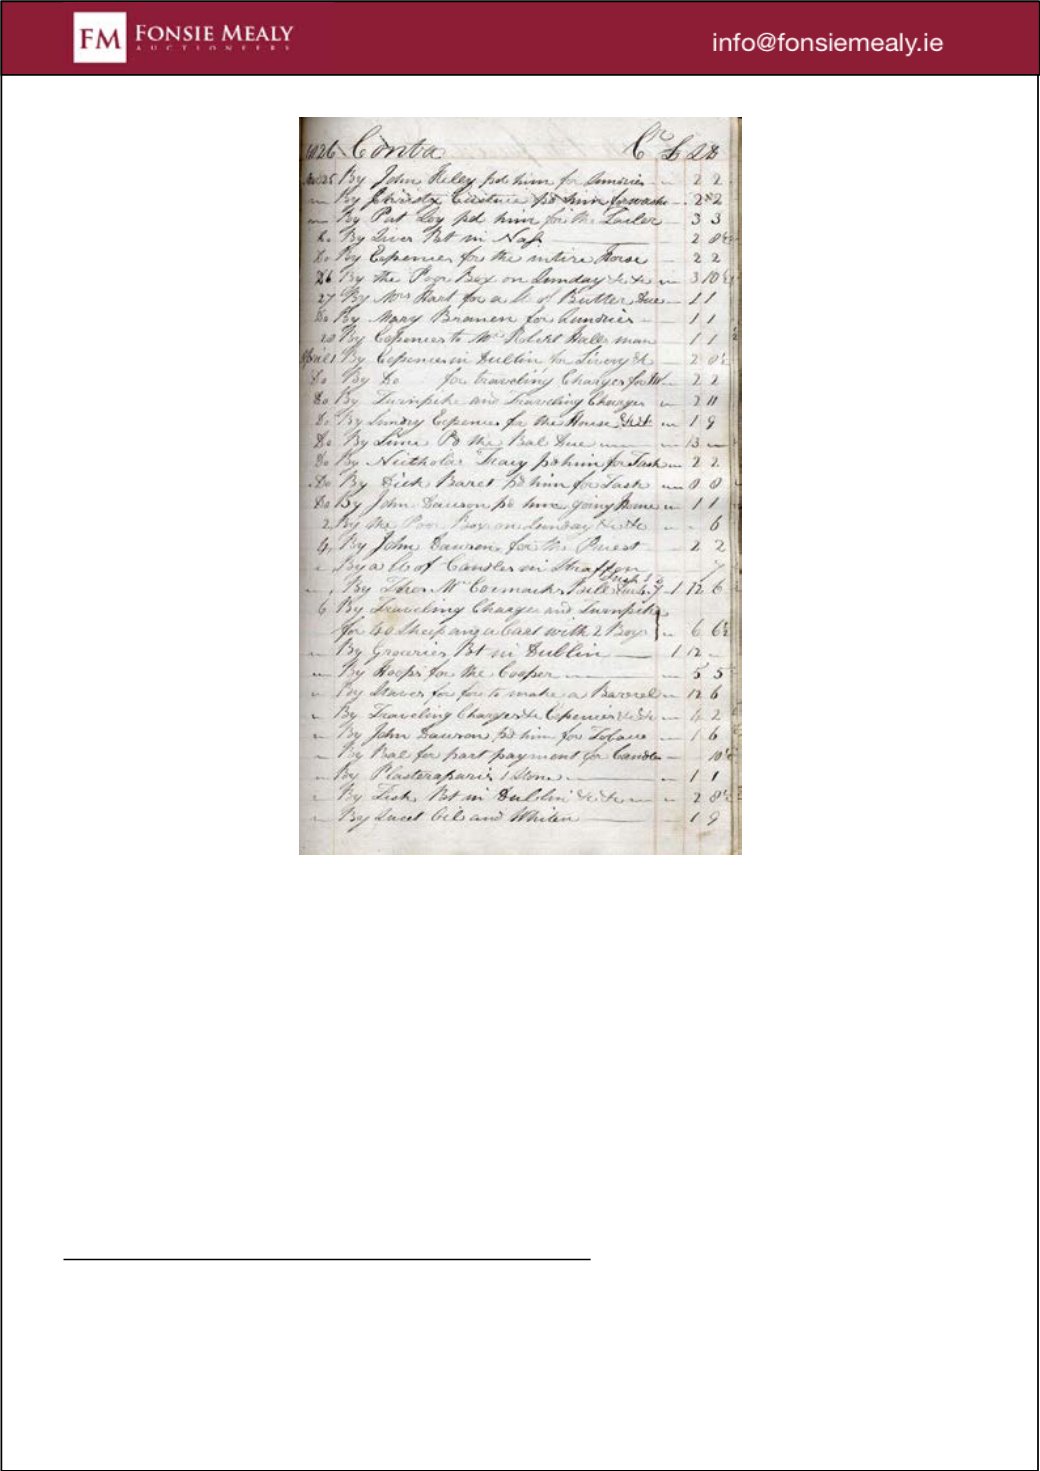 FM FONSIE MEALY
AUCTIONEERS
info@fonsiemealy.ie
1826 Contra Cr £ s d
25 By John Keley pd him for Sundries 2 2
By Christy pd him for 2 2
By Pat Loy pd him for the Tailer 3 3
By Liver Bt in Nass 2 8½
Do By Expences for the intire Horse 2 2
26 By the Poor Box on Sunday &c &c 3 10
27 By Mrs Hart for a lb of Butter Due 1 1
Do By Mary Branen for Sundries 1 1
28 By Expences to Mr Robert Halls man 1 1
April 1 By Expences in Dublin for Livery &c 2 8½
Do By Do for traveling Charges for 2 2
Do By Turnpike and Traveling Charges 2 11
Do By Sundry Expences for the House 1 9
Do By Lime Pd the Bal Due 13
Do By Nicholas Tracy pd him for Task 2 2
Do By Dick Baret pd him for Task 8 8
Do By John Dawson pd him going Home 1 1
2 By the Poor Box on Sunday &c &c 6
4 By John Dawson for the Priest 2 2
By a lb of Candles in Straffan 7
By Thos McCormacks Bill 1 12 6
6 By Traveling Charges and Turnpike
for 40 Sheep and a Cart with 2 Boys 6 6½
By Groceries Bt in Dublin 1 12
By Hoops for the Cooper 5 5
By Staves for for to make a Barrel 12 6
By Traveling Charges & Expences &c &c 4 2
By John Dawson pd him for Tobaco 1 6
By Bal for part payment for Candles 10½
By Plasteraparis 1 Stone 1 1
By Fish Bt in Dublin &c &c 2 8½
By Sweet Oil and Whiten 1 9